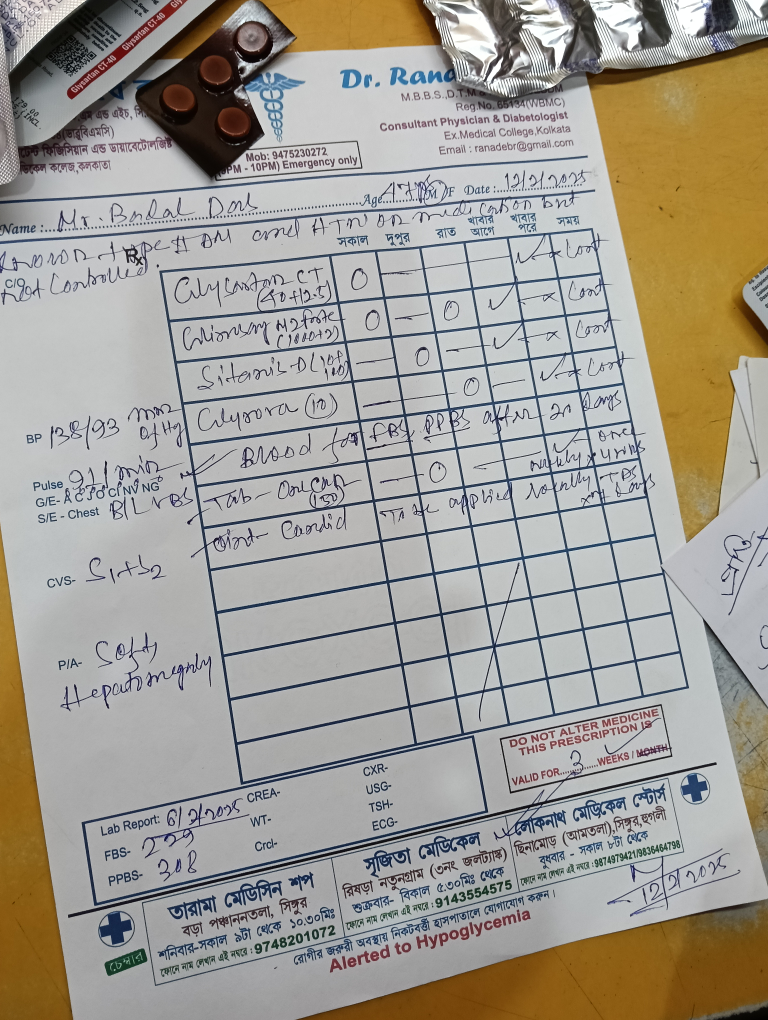 Glysartan CT-40
Glysartan CT-40
Dr. Rana
M.B.B.S.,D.T.M &
Reg.No. 65134(WBMC)
Consultant Physician & Diabetologist
Ex.Medical College,Kolkata
Email : ranadebr@gmail.com
ফিজিসিয়ান এন্ড ডায়াবেটোলজিষ্ট
কলেজ,কলকাতা
Mob: 9475230272
PM - 10PM) Emergency only
Name : Mr. Badal Das Age 47 M/F Date : 12/2/2025
Known type II DM and HTN on medication but
not controlled.
C/O
Rx
সকাল দুপুর রাত খাবার আগে খাবার পরে সময়
Glysartan CT (40+12.5) O — — ✓ x Cont
Glimsay M2 forte (1000+2) O — O ✓ — x Cont
Sitanis-D (10+100) — O — ✓ — x Cont
Glyrova (10) — — O — ✓ x Cont
Blood for FBS, PPBS after 20 days
Tab- Onecan (150) — O — ✓ once weekly x 4 wks
Oint- Candid To be applied locally TDS x 7 days
BP 138/93 mm of Hg
Pulse 91/min
G/E- A C J O C NV NG
S/E - Chest B/L VBS
CVS- S1+S2
P/A- Soft,
Hepatomegaly
DO NOT ALTER MEDICINE
THIS PRESCRIPTION IS
VALID FOR 3 WEEKS / MONTH
Lab Report: 6/2/2025
FBS- 229
PPBS- 308
CREA-
WT-
Crcl-
CXR-
USG-
TSH-
ECG-
চেম্বার
তারামা মেডিসিন শপ
বড়া পঞ্চাননতলা, সিঙ্গুর
শনিবার-সকাল ৯টা থেকে ১০.৩০মিঃ
ফোনে নাম লেখান এই নম্বরে : 9748201072
সৃজিতা মেডিকেল
রিষড়া নতুনগ্রাম (৩নং জলট্যাঙ্ক)
শুক্রবার- বিকাল ৫.৩০মিঃ থেকে
ফোনে নাম লেখান এই নম্বরে : 9143554575
লোকনাথ মেডিকেল স্টোর্স
ছিনামোড় (আমতলা),সিঙ্গুর,হুগলী
বুধবার - সকাল ৮টা থেকে
ফোনে নাম লেখান এই নম্বরে :9874979421/9836464798
রোগীর জরুরী অবস্থায় নিকটবর্তী হাসপাতালে যোগাযোগ করুন।
Alerted to Hypoglycemia
12/2/2025